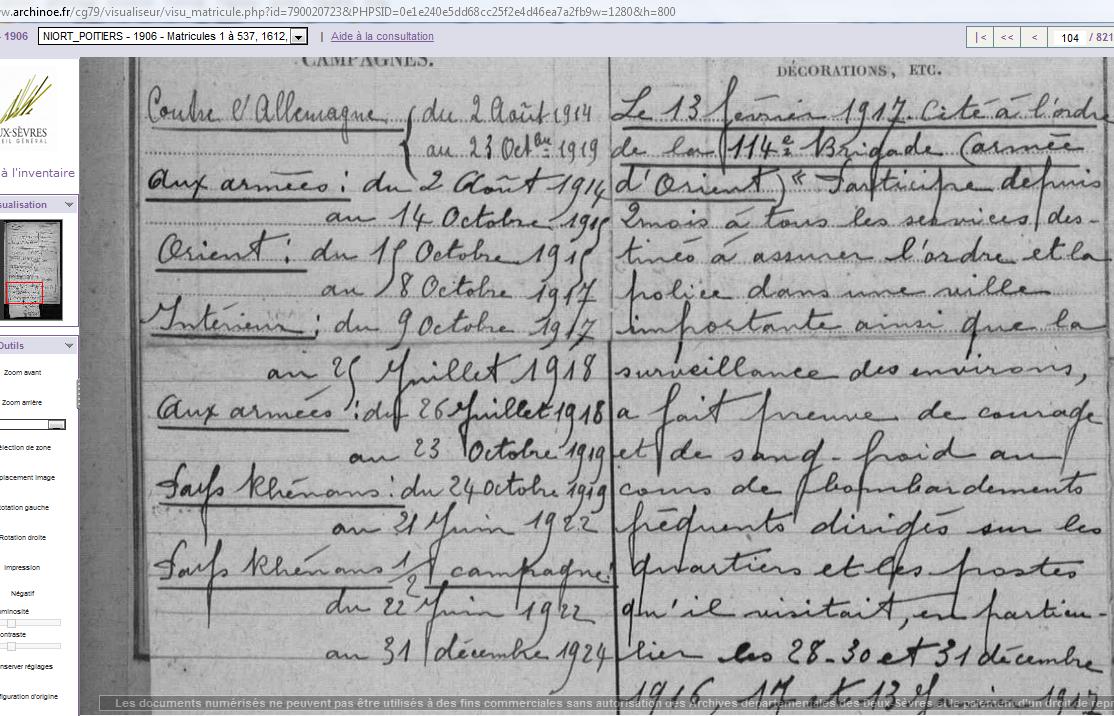 w.archinoe.fr/cg79/visualiseur/visu_matricule.php?id=790020723&PHPSID=0e1e240e5dd68cc25f2e4d46ea7a2fb9w=1280&h=800
- 1906
NIORT_POITIERS - 1906 - Matricules 1 à 537, 1612,
| Aide à la consultation
|< << < 104 / 821
UX-SÈVRES
EIL GÉNÉRAL
à l'inventaire
sualisation
Outils
Zoom avant
Zoom arrière
élection de zone
placement Image
otation gauche
Rotation droite
Impression
Négatif
minosité
ontraste
nserver réglages
figuration d'origine
CAMPAGNES.
Contre l'Allemagne { du 2 Août 1914
au 23 Octbre 1919
Aux armées : du 2 Août 1914
au 14 Octobre 1915
Orient : du 15 Octobre 1915
au 8 Octobre 1917
Intérieur : du 9 Octobre 1917
au 25 Juillet 1918
Aux armées : du 26 Juillet 1918
au 23 Octobre 1919
Pays Rhénans : du 24 Octobre 1919
au 21 Juin 1922
Pays Rhénans 1/2 campagne :
du 22 Juin 1922
au 31 décembre 1924
DÉCORATIONS, ETC.
Le 13 février 1917. Cité à l'ordre
de la 114e Brigade (armée
d'Orient) « Participe depuis
2 mois à tous les services, des-
tinés à assurer l'ordre et la
police dans une ville
importante ainsi que la
surveillance des environs,
a fait preuve de courage
et de sang-froid au
cours de bombardements
fréquents dirigés sur les
quartiers et les postes
qu'il visitait, en particu-
lier les 28-30 et 31 décembre
1916, 17 et 13 Janvier 1917
Les documents numérisés ne peuvent pas être utilisés à des fins commerciales sans autorisation des Archives départementales des Deux-Sèvres et le paiement d'un droit de rep